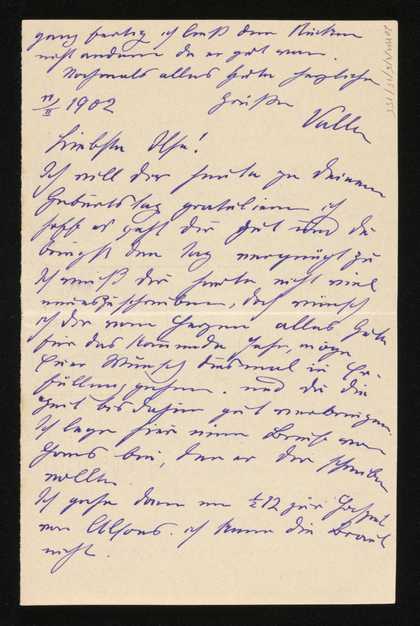 ganz fertig ich ließ den Rücken
nicht ändern da er gut war.
Nochmals alles Gute herzliche
11/II 1902 Grüße
Vally
Liebste Else!
Ich will dir heute zu deinem
Geburtstag gratulieren ich
hoffe es geht dir gut und du
bringst den Tag vergnügt zu
Ich weiß dir heute nicht viel
zu schreiben, doch wünsch
ich dir vom Herzen alles Gute
für das kommende Jahr, möge
Euer Wunsch diesmal in Er-
füllung gehen. und du die
Zeit bis dahin gut verbringen.
Ich lege hier einen Brief von
Hans bei, den er dir schicken
wollte
Ich gehe dann um ½12 zur
von Alfons. ich kenn die Braut
nicht.